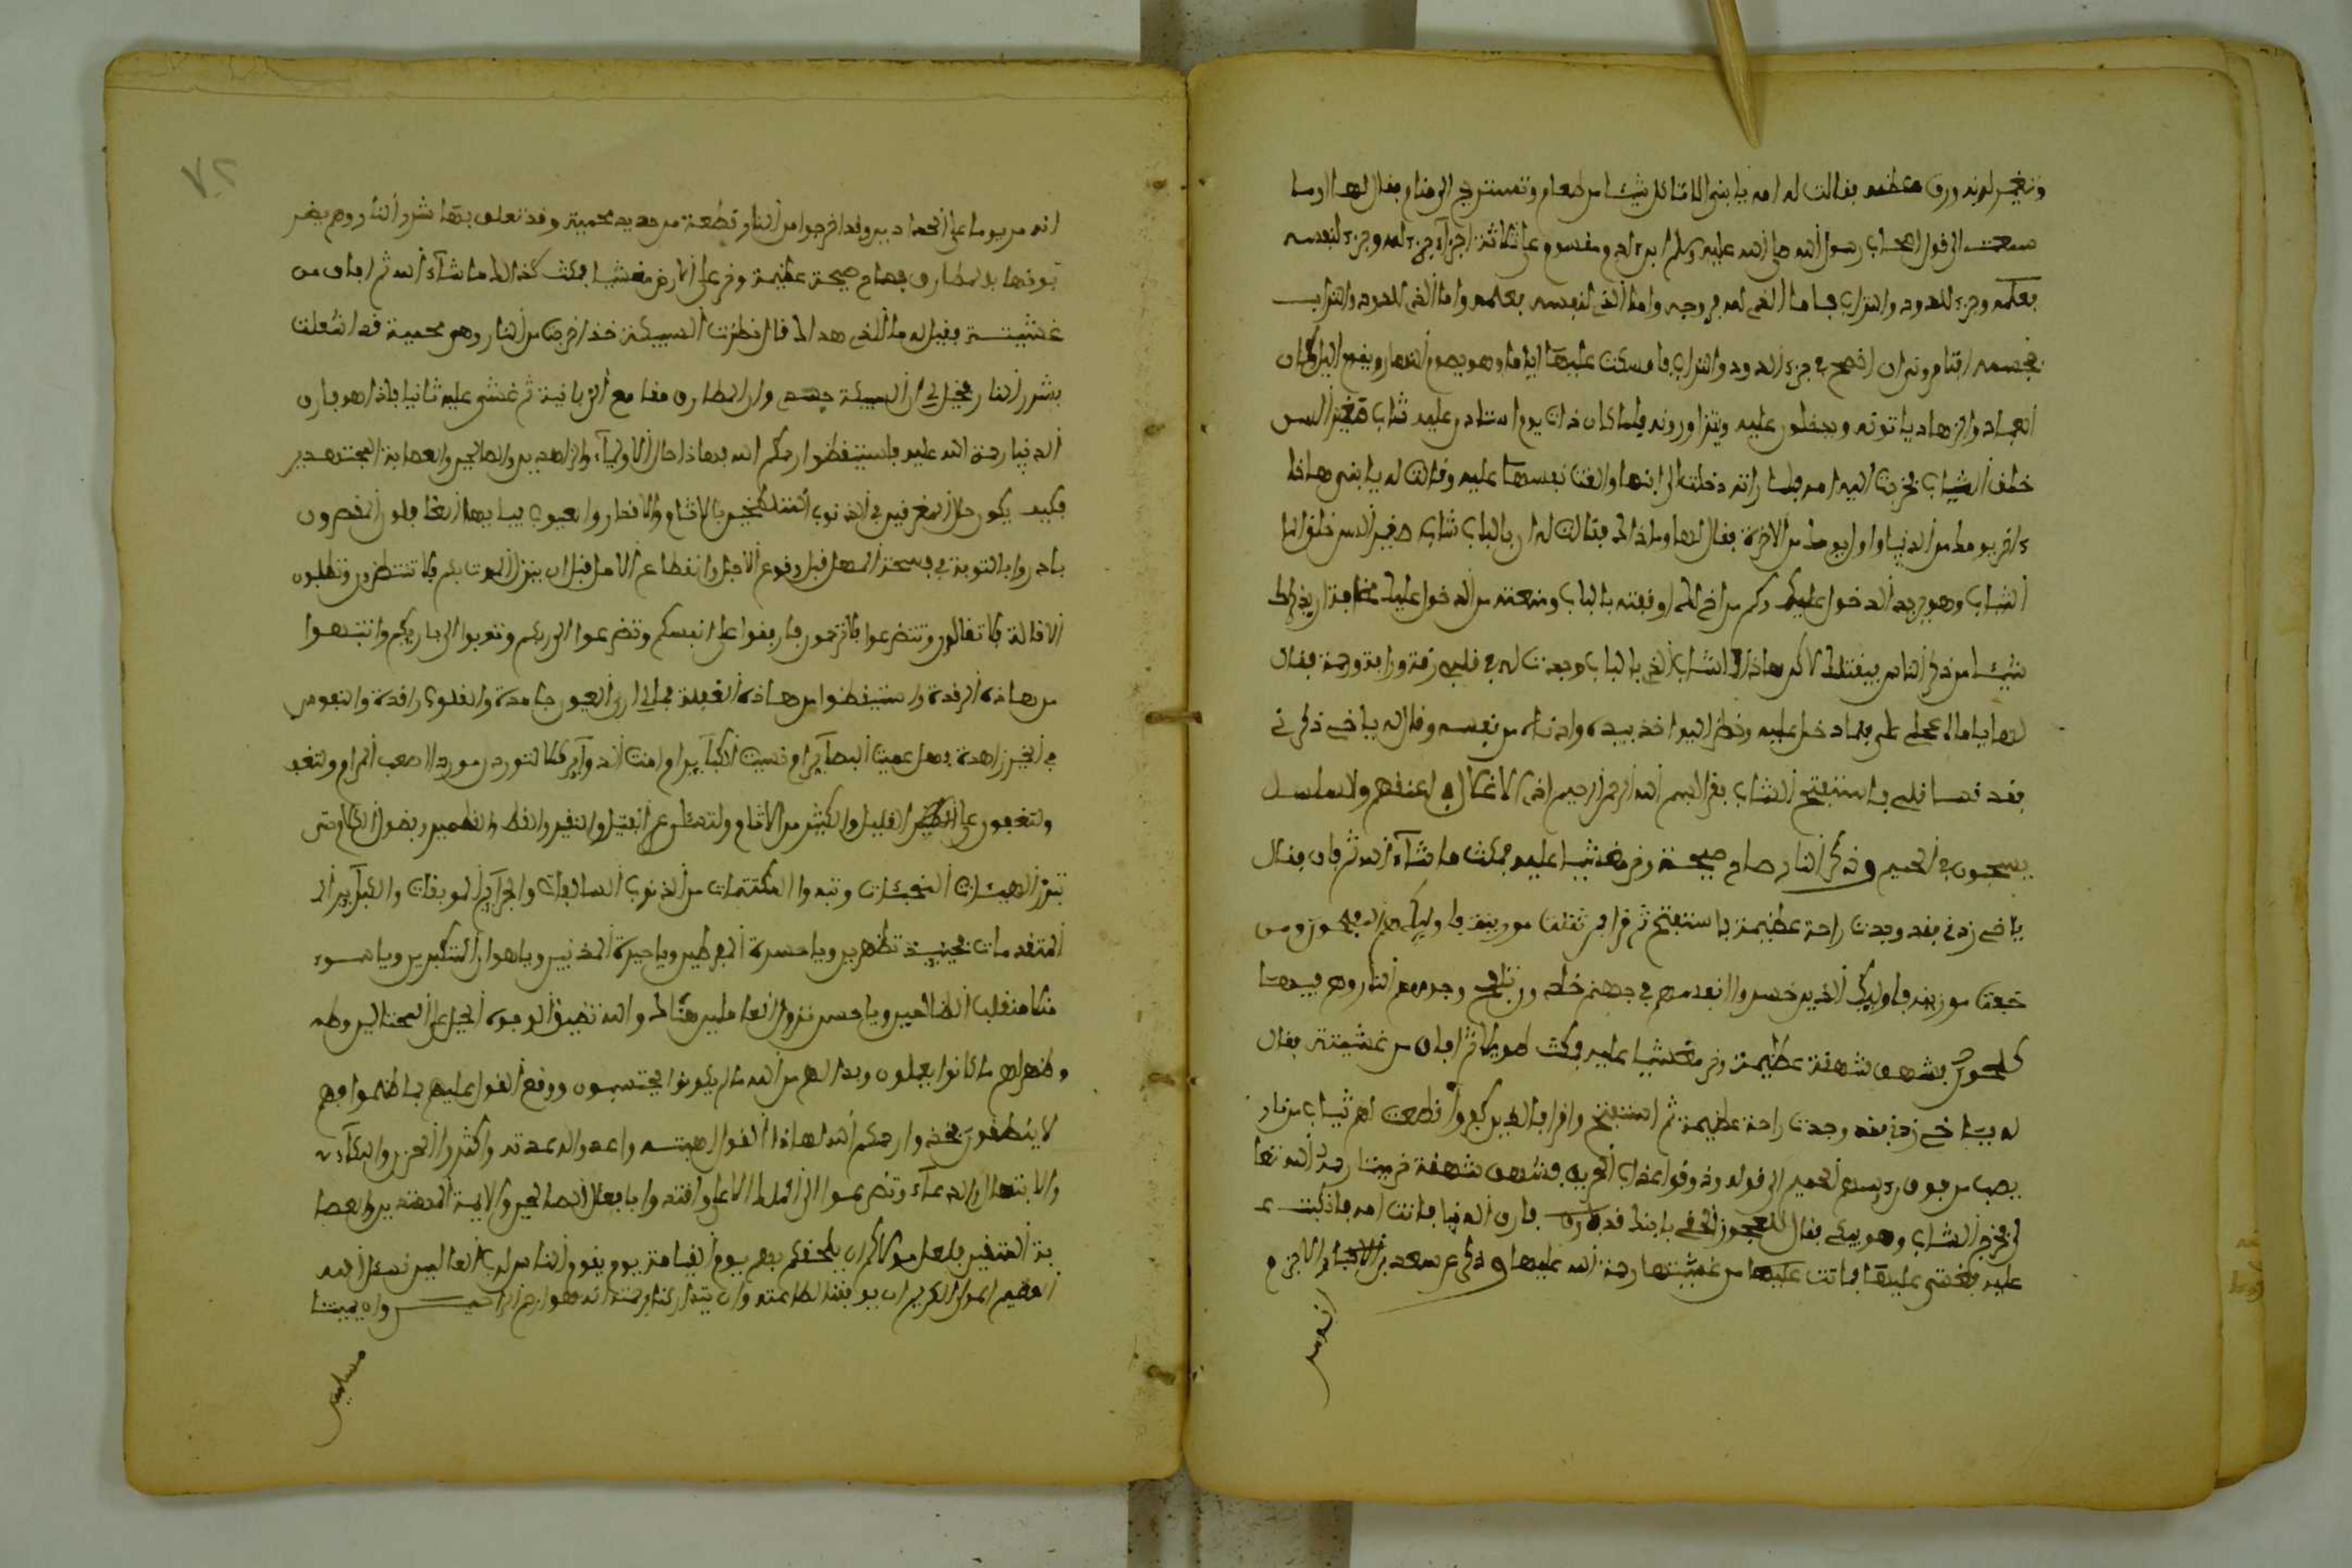 وتغير لونه ورق عظمه فقالت له امه يا بني الا تاكل شيئا من طعام وتستريح الى منام فقال لها اوما
سمعت الى قول اصحاب رسول الله صلى الله عليه وسلم ابن ادم مقسوم على ثلاثة اجزآء جزء لله وجزء لنفسه
بعلمه وجزء للدود والتراب فاما الذي لله فروحه واما الذي لنفسه فعلمه واما الذي للدود والتراب
فجسمه افتامرونه ان اصح في جزء الدود والتراب فامسكت عليها اياما وهو يصوم النهار ويقوم اليل وكان
العباد والزهاد ياتونه ويدخلون عليه ويتزاورونه فلما كان ذات يوم استاذن عليه شاب صغير السن
خلف الشباب فخرجت اليه امه فلما راته دخلت الى ابنها والقت نفسها عليه وقالت له يا بني هاذا
ءاخر يومك من الدنيا واول يومك من الاخرة فقال لها وما ذاك فقالت له ان بالباب شاب صغير السن خلق
الشباب وهو يريد الدخول عليك وكم من اخ لك اوقفته بالباب ومنعته من الدخول عليك مخافة ان يذكر لك
شيئا من ذكر النار فيقتلك لاكن هاذا الشاب الذي بالباب وجدت له في قلبي رقة ورافة ورحمة فقال
لها يا اماه عجلي علي به فلما دخل عليه ونظر اليه اخذ بيده وادناه من نفسه وقال له يا اخي ذكرني
فقد قسا قلبي فاستفتح الشاب فقرا بسم الله الرحمن الرحيم اذ الاغلال في اعناقهم والسلاسل
يسحبون في الحميم وذكر النار صاح صيحة وخر مغشيا عليه فمكث ما شآء الله ثم افاق فقال
يا اخي زدني فقد وجدت راحة عظيمة فاستفتح ثم قرا فمن ثقلت موازينه فاوليك هم المفلحون ومن
خفت موازينه فاوليك الذين خسروا انفسهم في جهنم خلدون تلفح وجوههم النار وهم فيها
كلحون فشهق شهقة عظيمة وخر مغشيا عليه فمكث طويلا ثم افاق من غشيته فقال
له يا اخي زدني فقد وجدت راحة عظيمة ثم استفتح وقرا فالذين كفروا قطعت لهم ثياب من نار
يصب من فوق رءوسهم الحميم الى قوله وذوقوا عذاب الحريق فشهق شهقة فمات رحمة الله تعا
لى فخرج الشاب وهو يبكي فقال للعجوز الحقي بابنك قد فارق الدنيا فاتت امه فانكبت
عليه فغشي عليها فماتت عليها من غشيتها رحمة الله عليها وذكر عن سعد بن
انه مر
٧٢
انه مر يوما على الحدادين وقد اخرجوا من النار قطعة من حديد محمية وقد تعلق بها شرر النار وهم يضر
بونها بالمطارق فصاح صيحة عظيمة وخر على الارض مغشيا فمكث كذالك ما شآء الله ثم افاق من
غشيته فقيل له ما الذي هد اك قال نظرت السبيكة خذ اخرجت من النار وهي محمية قد اشعلت
بشرر النار فخيل لي ان السبيكة جسمي وان المطارق مقامع الزبانية ثم غشي عليه ثانيا فاذا هو فارق
الدنيا رحمة الله عليه فاستيقظوا رحمكم الله فهاذا حال الاوليآء والزاهدين والصالحين والعصابة المجتهدين
فكيف يكون حال المغرقين في الذنوب المتلطخين بالاثام والاقذار والعيوب فيا بها
بادروا بالتوبة في فسحة المهل قبل وقوع الاجل وانقطاع الامل قبل ان ينزل الموت بكم فلا تنتظرون وتطلبون
الاقالة فلا تقالون وتتضرعوا فلا ترحمون فارفقوا على انفسكم وتضرعوا الى ربكم وتوبوا الى باريكم وانتبهوا
من هاذه الرقدة واستيقظوا من هاذه الغفلة فمالي ارى العيون جامدة والقلوب راقدة والنفوس
في الخير زاهدة وهل عميت البصآير او نسيت الكبآير او امنت الدوآير كلا لتوردن موردا صعب المرام ولتقد
ولتقفون على القليل والكثير من الاثام ولتسئلون عن الفتيل والنقير والقطمير وفضول الكلام حتى
تبرز الهيئات المخبئات وتبدوا المكتتمات من الذنوب السالفات والجرآيم الموبقات والكبآير ال
المتقدمات فحينئذ تظهر ويا حسرة المفرطين ويا حيرة المذنبين ويا هوان المتكبرين ويا سوء
منقلب الظالمين ويا خسر العاملين هنالك والله تضيق الوجوه
وظهر لهم ما كانوا يعملون وبدا لهم من الله ما لم يكونوا يحتسبون ووقع القول عليهم بما ظلموا فهم
لا ينطقون فخذوا رحمكم الله لهاذا القول اهبته واعدوا له عدته واكثروا الحزن والبكآء
والابتهال والدعآء وتضرعوا الى الملك الاعلى واقتدوا بافعال الصالحين والايمة المهتدين والعصا
بة المتقين فلعل مولاكم ان يلحقكم بهم يوم القيامة يوم يقوم الناس لرب العالمين نسئل الله
العظيم المولى الكريم ان يوفقنا لطاعته وان يتداركنا برحمته انه هو ارحم الراحمين وان يميتنا
مسلمين